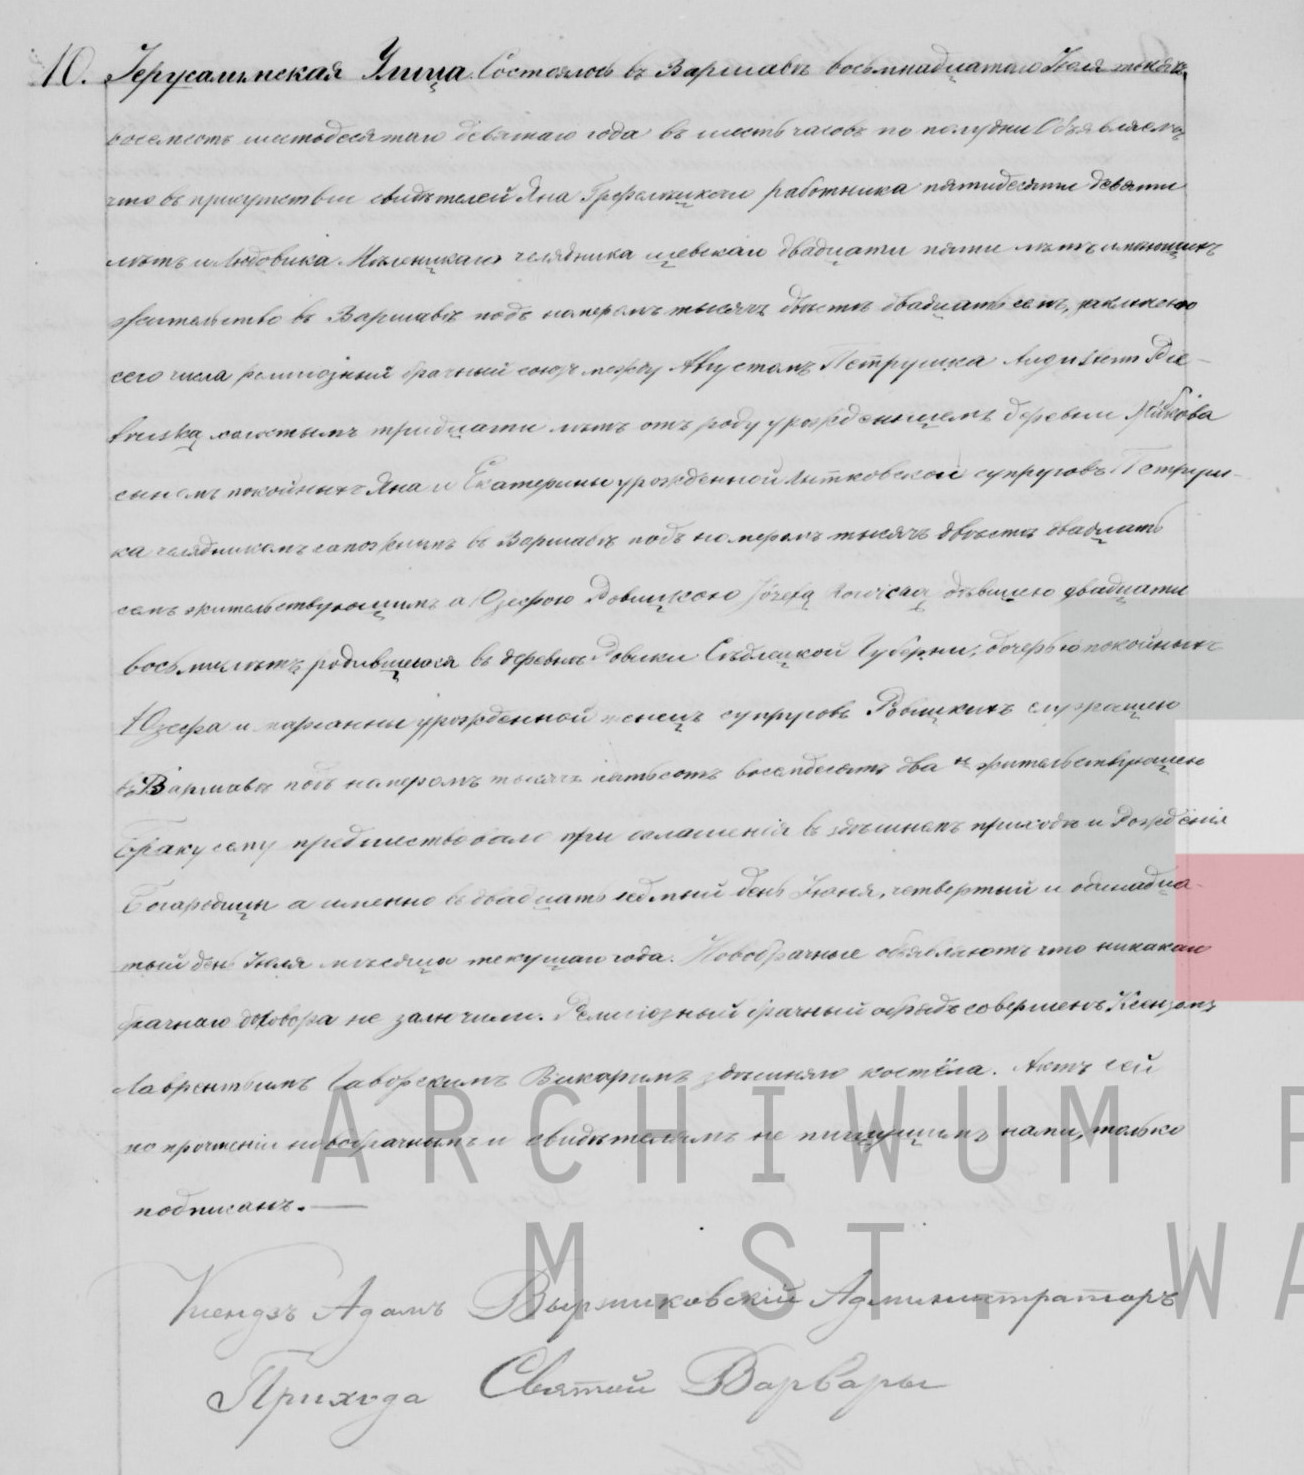 10. Іерусалимская Улица. Состоялось въ Варшавѣ восьмнадцатаго Іюля тысяча
восемсотъ шестьдесятаго девятаго года въ шесть часовъ по полудни Объявляемъ
что въ присутствіи свидѣтелей Яна работника пятидесяти девяти
лѣтъ и Людовика челядника шевскаго двадцати пяти лѣтъ имѣющихъ
жительство въ Варшавѣ подъ номеромъ тысяча двѣсти двадцать семь, заключено
сего числа религіозный брачный союзъ между Августомъ Петрушка Augustem Pie-
truszką холостымъ тридцати лѣтъ отъ роду урожденнымъ деревни
сыномъ покойныхъ Яна и Екатерины урожденной супруговъ Петруш-
ка челядникомъ сапожнымъ въ Варшавѣ подъ номеромъ тысячъ двѣсти двадцать
семь жительствующимъ а Юзефою Józefą дѣвицею двадцати
восьми лѣтъ, родившеюся въ деревнѣ Сѣдлецкой Губерни, дочерью покойныхъ
Юзефа и Марianны урожденной супруговъ служащею
въ Варшавѣ подъ номеромъ тысяча пятьсотъ восемдесятъ два н жительствующею
Браку сему предшествовало при оглашенія въ здѣшнемъ приходѣ и Рождёнія
Богародицы а именно въ двадцать седмый день Іюня, четвертый и одинадца-
тый день Іюля мѣсяца текущаго года. Новобрачные объявляютъ что никакаго
брачнаго договора не заключили. Религіозный брачный обрядъ совершенъ Ксендзомъ
Лаврентымъ Викаримъ здѣшняго костёла. Актъ сей
по прочтеніи новобрачнымъ и свидѣтелямъ не пишущимъ нами, только
подписанъ.—
Ксендзъ Адамъ Администраторъ
Прихода Святой Варвары
ARCHIWUM P
M.ST.WA